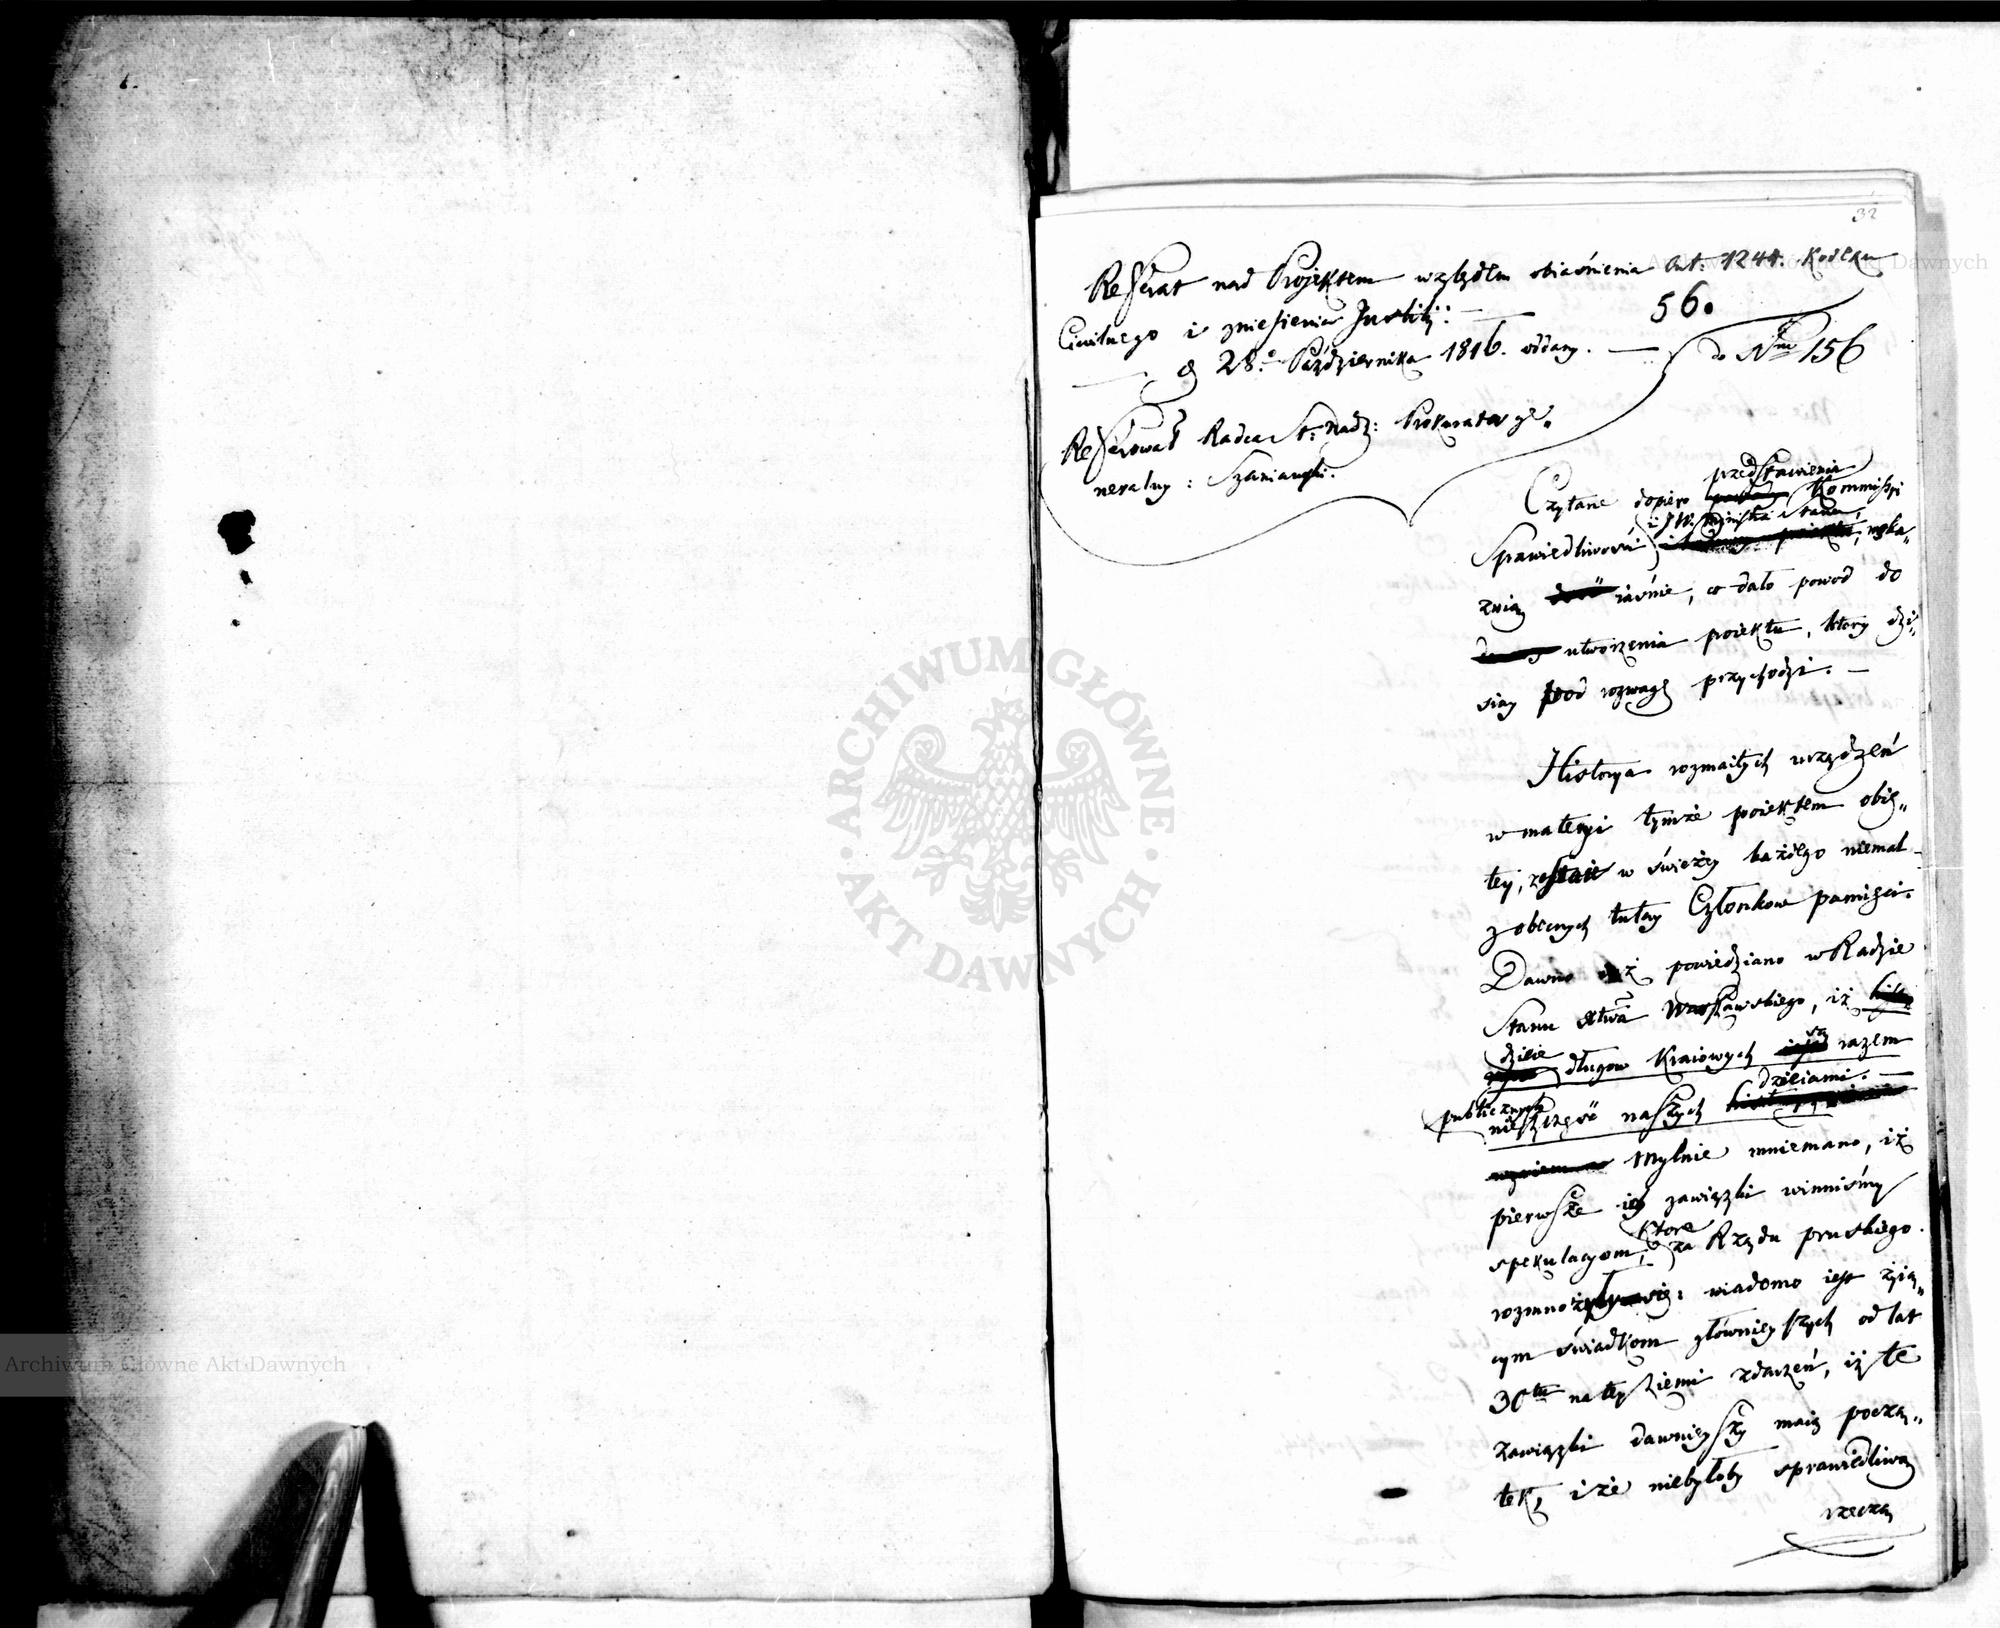 32
Referat nad Projektem względem obiaśnienia Art: 1244. Kodexu
Cywilnego i zniesienia Justitij: —
56.
d 28.° Października 1816. oddany. —
do Nru 156
Referował Radca St: Nadz: Prokurator ge„
neralny: Szaniawski.
przedstawienia
Czytane dopiero Kommissyi
i JW. Ministra Stanu
Sprawiedliwości, wska„
zuią iaśnie, co dało powod do
utworzenia poiektu, ktory dzi„
siay pod rozwagę przychodzi. —
Historya rozmaitych urządzeń
w materyi tymże poiektem obię„
tey, zostaie w świeżey każdego niemal
z obecnych tutay Członkow pamięci.
Dawno iuż powiedziano w Radzie
Stanu Xtwa Warszawskiego, iż
dzieie długow Kraiowych są razem
dzieiami. —
publicznych
nieszczęść naszych
Mylnie mniemano, iż
pierwsze ich zawiązki winniśmy
spekulacyom, ktore za Rządu pruskiego
rozmnożyły się: wiadomo iest żyią„
cym świadkom głównieyszych od lat
30tu na tey Ziemi zdarzeń, iż te
zawiązki dawnieyszy maią począ„
tek, i że niebyłoby sprawiedliwą
rzeczą
ARCHIWUM GŁÓWNE · AKT DAWNYCH ·
Archiwum Główne Akt Dawnych
Archiwum Główne Akt Dawnych